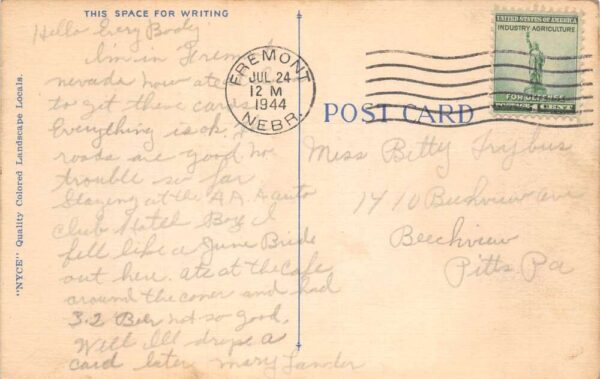 THIS SPACE FOR WRITING
Hello Every Body
I'm in Fremont
nevada now ate
to get these cards
Everything is ok.
roads are good no
trouble so far
Staying at the A.A. Auto
Club Hotel Boy I
fell like a June Bride
out here. ate at the Cafe
around the corner and had
3.2 Beer not so good.
Well Ill drope a
card later Mary
"NYCE" Quality Colored Landscape Locals.
FREMONT
JUL 24
12 M
1944
NEBR.
UNITED STATES OF AMERICA
INDUSTRY AGRICULTURE
FOR DEFENSE
POSTAGE 1 CENT
POST CARD
Miss Betty Trybus
1410 Beechview ave
Beechview
Pitts. Pa